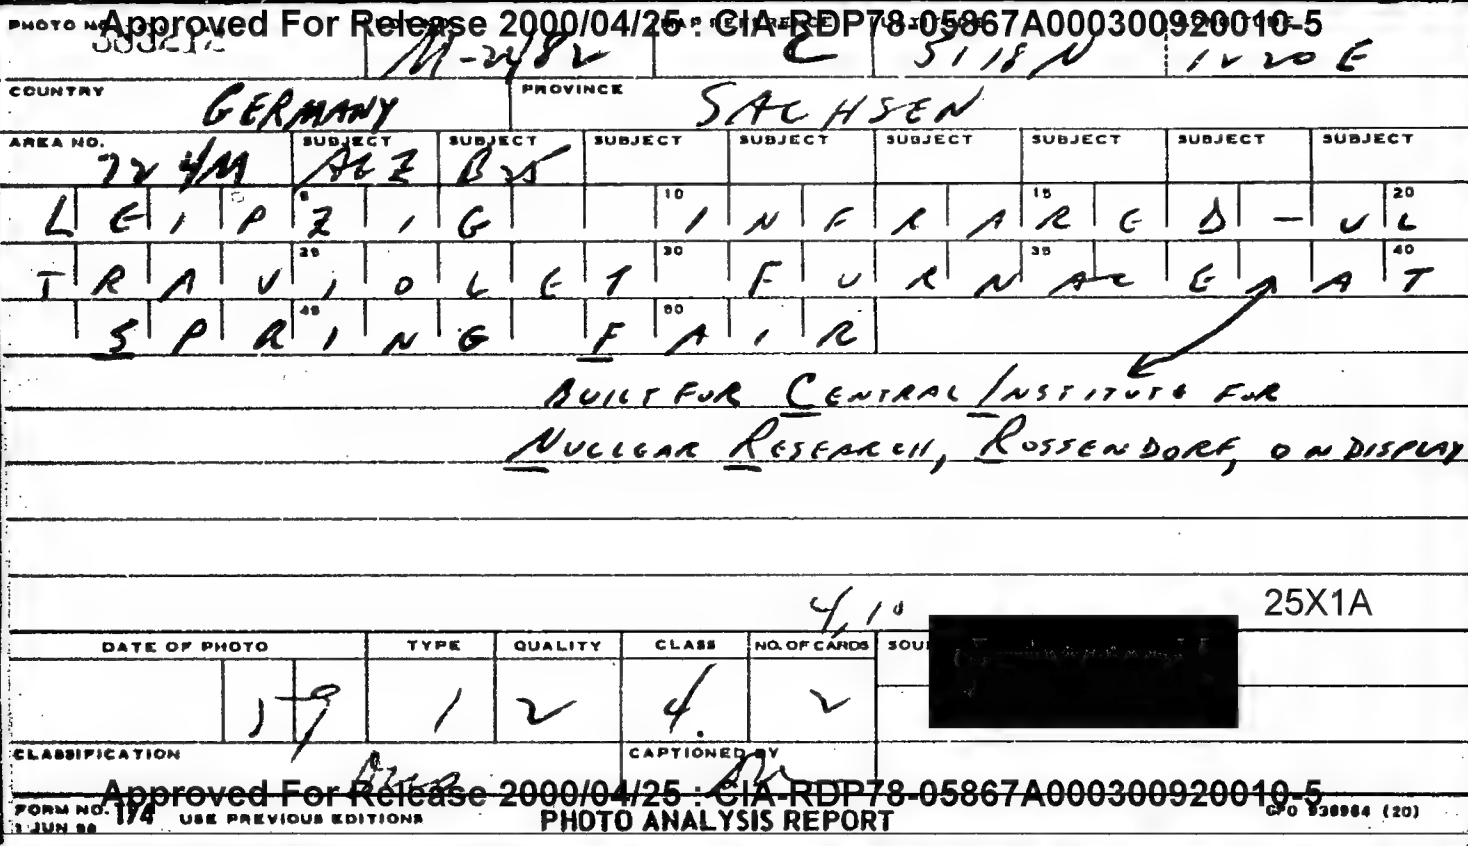 Approved For Release 2000/04/25 : CIA-RDP78-05867A000300920010-5
PHOTO NO. MAP REFERENCE
M-2482 C 5118N 1220E
COUNTRY GERMANY PROVINCE SACHSEN
AREA NO. SUBJECT SUBJECT SUBJECT SUBJECT SUBJECT SUBJECT SUBJECT SUBJECT
724/M ACZ B25
5 10 15 20
LEIPZIG INFRARED-UL
25 30 35 40
TRAVIOLET FURNACE AT
45 50
SPRING FAIR
BUILT FOR CENTRAL INSTITUTE FOR
NUCLEAR RESEARCH, ROSSENDORF, ON DISPLAY
4,10 25X1A
DATE OF PHOTO TYPE QUALITY CLASS NO. OF CARDS SOU
1 2 4. 2
CLASSIFICATION CAPTIONED BY
Approved For Release 2000/04/25 : CIA-RDP78-05867A000300920010-5
FORM NO. 174 USE PREVIOUS EDITIONS PHOTO ANALYSIS REPORT GPO 938984 (20)
1 JUN 56